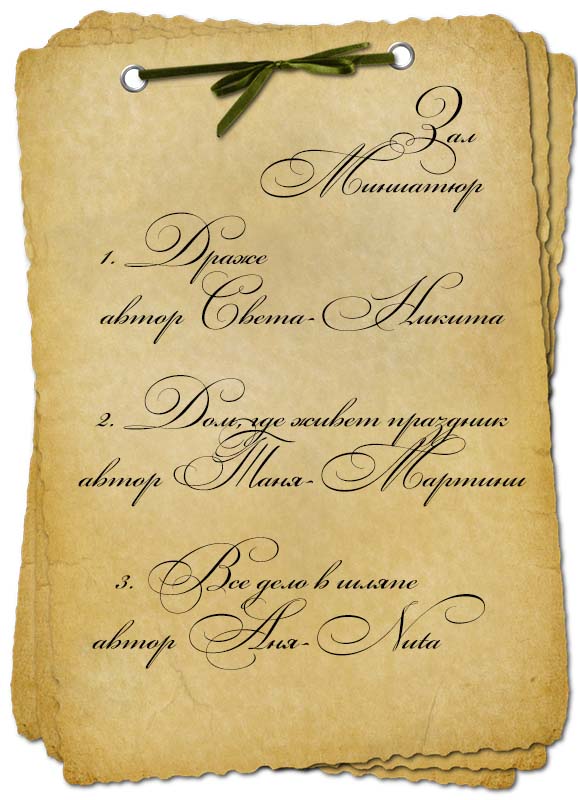 Зал
Миниатюр
1. Драже
автор Света- Никита
2. Дом, где живет праздник
автор Таня- Мартини
3. Все дело в шляпе
автор Аня- Nuta